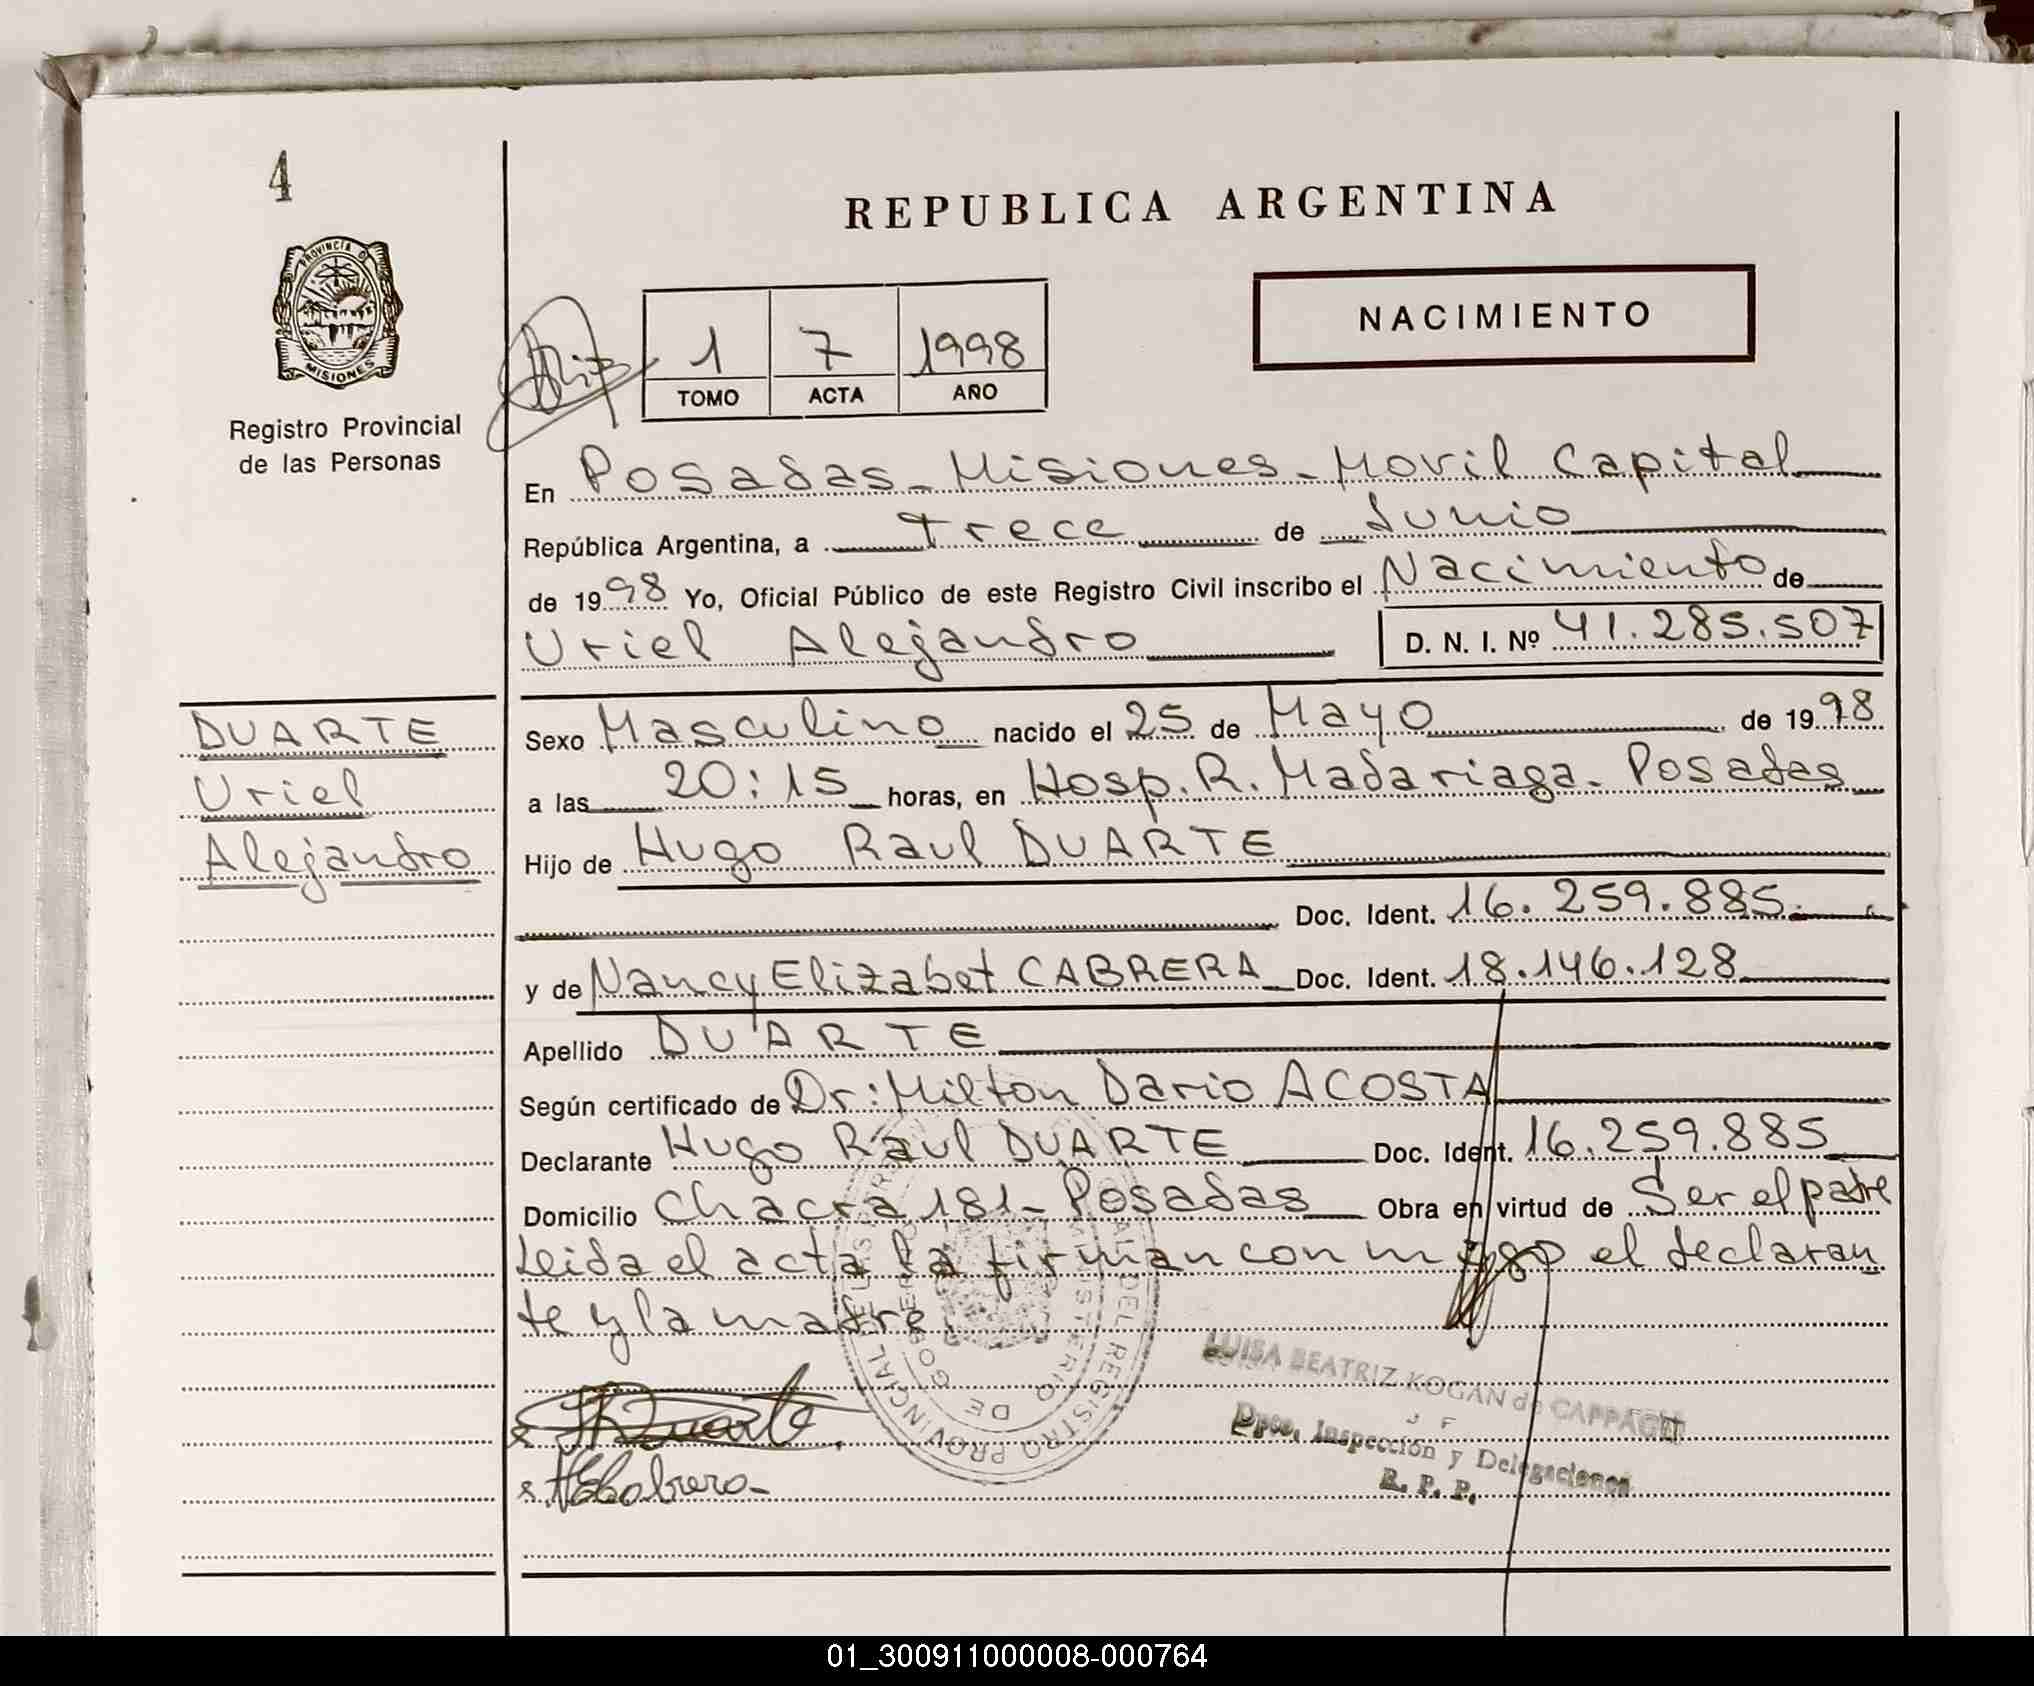 4
REPUBLICA ARGENTINA
PROVINCIA D
MISIONES
NACIMIENTO
1 7 1998
TOMO ACTA AÑO
Registro Provincial
de las Personas
En Posadas - Misiones - Movil Capital
República Argentina, a trece de Junio
de 1998 Yo, Oficial Público de este Registro Civil inscribo el Nacimiento de
Uriel Alejandro D. N. I. Nº 41.285.507
DUARTE
Uriel
Alejandro
Sexo Masculino nacido el 25 de Mayo de 1998
a las 20:15 horas, en Hosp. R. Madariaga - Posadas
Hijo de Hugo Raul DUARTE
Doc. Ident. 16.259.885
y de Nancy Elizabet CABRERA Doc. Ident. 18.146.128
Apellido DUARTE
Según certificado de Dr: Milton Dario ACOSTA
Declarante Hugo Raul DUARTE Doc. Ident. 16.259.885
Domicilio Chacra 181 - Posadas Obra en virtud de Ser el padre
Leida el acta la firman con migo el declaran
te y la madre.
Duarte
NECabrera
REGISTRO PROVINCIAL DE LAS
MINISTERIO DE GOBIERNO
LUISA BEATRIZ KOGAN de
Dpto. Inspección y Delegaciones
R. P. P.
01_300911000008-000764